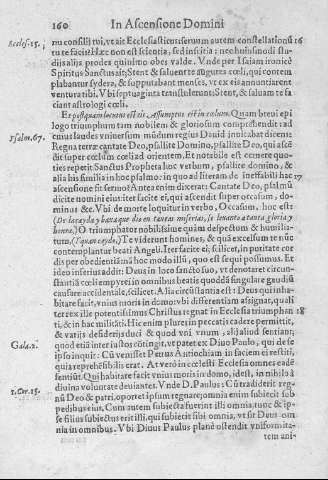 160 In Ascensione Domini
Eccles. 15. nu consilij tui, vt ait Ecclesiasticus: serum autem constellationū 16
tu te facis. Hæc non est scientia, sed insitia: nec huiusmodi studijs
alija prodes quinimo obes valde. Vnde per Isaiam ironicè
Spiritus Sanctus ait, Stent & saluent te augures cœli, qui contemplabantur
sydera, & supputabant menses, vt ex eis annuntiarent
venturatibi. Vbi septuaginta transtulerunt: Stent, & saluam te faciant
astrologi cœli.
Et postquam locutus est eis. Assumptus est in cœlum. Quam breui epilogo
triumphum tam nobilem & gloriosum comprehendit: ad
Psalm. 67. cuius laudes vniuersum mundum regius Dauid inuitabat dicens:
Regna terræ cantate Deo, psallite Domino, psallite Deo, qui ascēdit
super cœlum cœli ad orientem. Et notabile est cernere quoties
repetit Sanctus Propheta hoc verbum, psallite domino, &
alia his similia in hoc psalmo: in quo ad literam de ineffabili hac 17
ascensione sit sermo. Antea enim dixerat: Cantate Deo, psalmū
dicite nomini eius: iter facite ei, qui ascendit super occasum, dominus
&c. Vbi de morte loquitur in verbo, Occasum, hoc est:
honra.) O triumphator nobilissime quàm despectum & humiliatum.
(Tquan ceydo.) Te viderunt homines, & quā excelsum te nūc
contemplantur beati Angeli. Iter facite ei, scilicet, in puritate cordis
per obedientiā: nā hoc modo illū, quo est sequi possumus. Et
ideo inferius addit: Deus in loco sancto suo, vt denotaret circunstantiā
cœli empyrei in omnibus beatis quoddā singulare gaudiū
causare accidentale, scilicet. Alia circunstantia est: Deus qui inhabitare
facit, vnius moris in domo: vbi differentiam assignat, qualiter
ex ille potentissimus Christus regnat in Ecclesia triumphan 18
ti, & in hac militāti: Hic enim plures in peccatis cadere permittit,
& varijs desiderijs duci & quod vni vnum, alij aliud sentiant;
Gala. 2. quod etiā inter iustos cōtingit, vt patet ex Diuo Paulo, qui de se
ipso inquit: Cū venisset Petrus Antiochiam in faciem ei restiti,
quia reprehēsibilis erat. At verò in cœlesti Ecclesia omnes eadē
sentiūt. Qui habitare facit vnius moris in domo, idest, in nihilo à
1. Cor. 15. diuina voluntate deuiantes. Vnde D. Paulus: Cū tradiderit regnū
Deo & patri, oportet ipsum regnare; omnia enim subiecit sub
pedibus eius. Cum autem subiecta fuerint illi omnia tunc & ipse
filius subiectus erit illi, qui subiecit sibi omnia, vt sit Deus omnia
in omnibus. Vbi Diuus Paulus planè ostendit vniformitatem
ani-